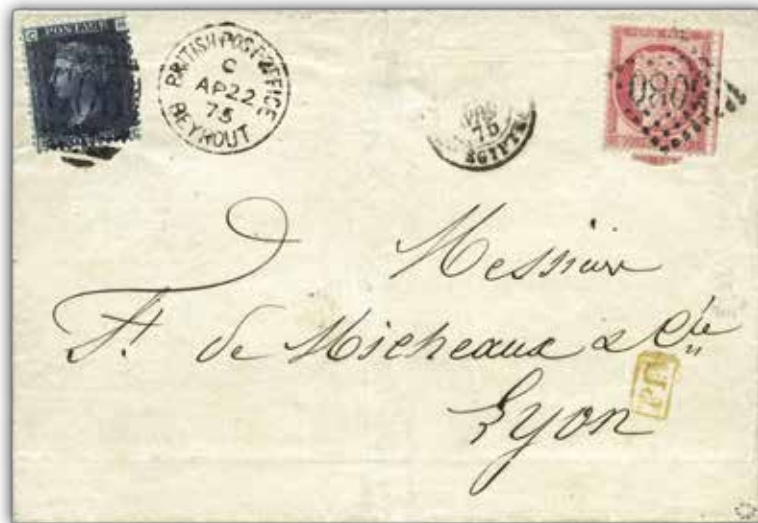 POSTAGE
BRITISH POST OFFICE
C
AP 22
75
BEYROUT
75
EGYPTE
080
Messieur
F. de Micheaux & Cie
Lyon
P.D.